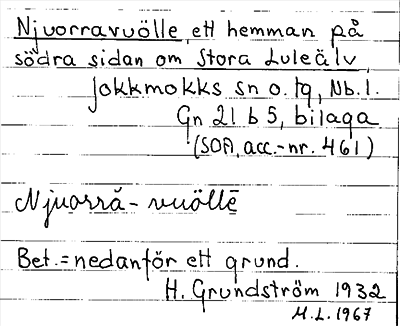 Njuorravuölle, ett hemman på
södra sidan om Stora Luleälv,
Jokkmokks sn o. tg, Nb. l.
Gn 21 b 5, bilaga
(SOFI, acc.-nr. 461)
Njuorrā- vuöllē
Bet.= nedanför ett grund.
H. Grundström 1932
M.L. 1967